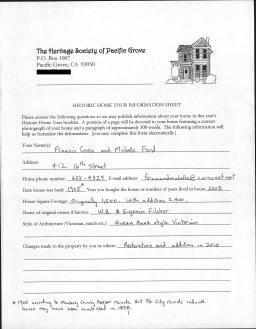 The Heritage Society of Pacific Grove
P.O. Box 1007
Pacific Grove, CA 93950
HISTORIC HOME TOUR INFORMATION SHEET
Please answer the following questions so we may publish information about your home in this year's
Historic Home Tour booklet. A portion of a page will be devoted to your home featuring a current
photograph of your home and a paragraph of approximately 300 words. The following information will
help us formulate the information. (you may complete this form electronically)
Your Name(s):
Francis Coen and Michelle Ford
Address:
412 16th Street
Home phone number: 658-4329 E-mail address: franandmichelle@comcast.net
Date house was built 1905* Year you bought the house or number of years lived in house 2003
House Square Footage: Originally 1,500. With addition 2,400.
Name of original owner if known: W.B. & Eugenia Filcher
Style of Architecture (Victorian, ranch etc.) Queen Anne style Victorian
Changes made to the property by you or others: Restoration and addition in 2010
* 1905 according to Monterey County Assessor records. But PG City records indicate
house may have been constructed in